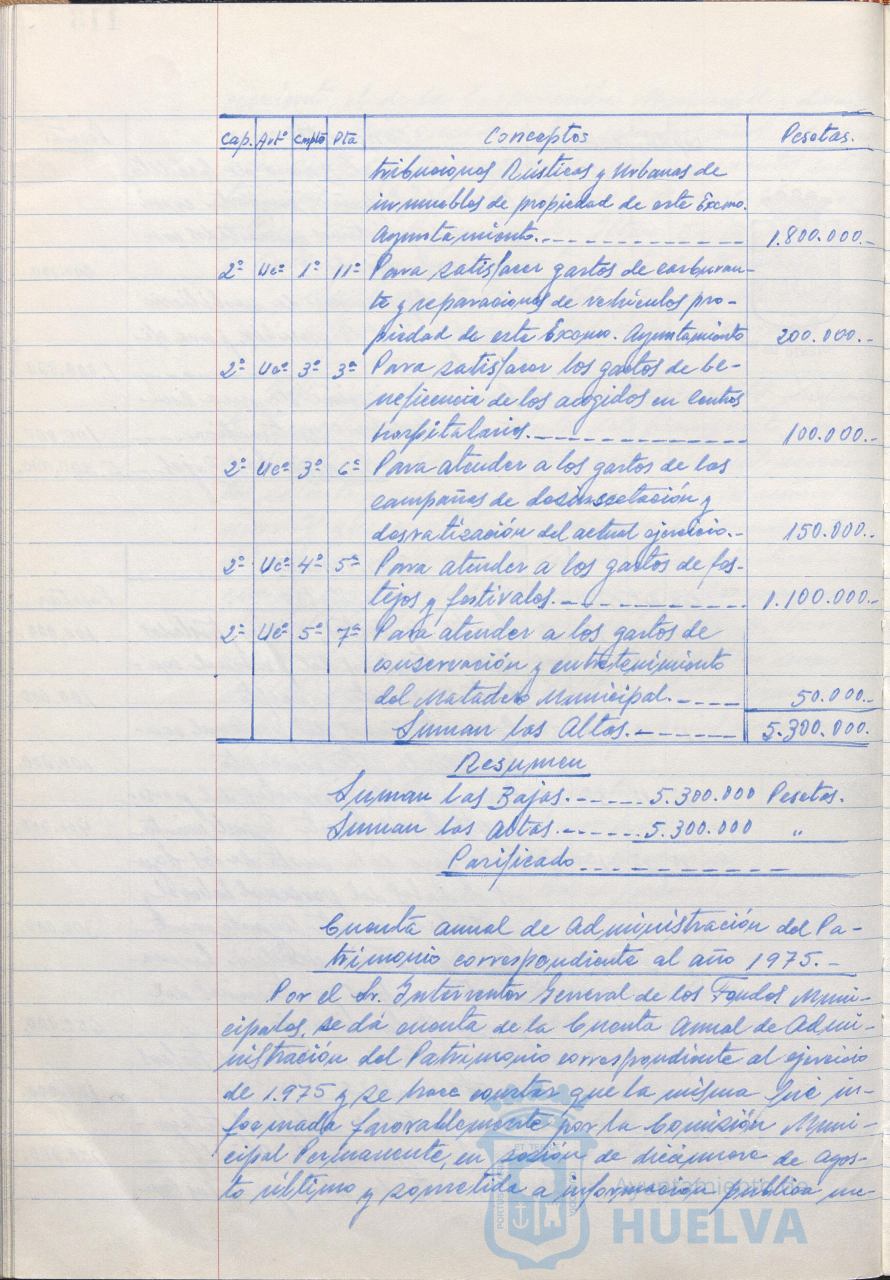 Cap. Artº Cmpto Pta Conceptos Pesetas.
tribuciones Rústicas y Urbanas de
inmuebles de propiedad de este Excmo.
Ayuntamiento.- 1.800.000.-
2º Ucº 1º 11ª Para satisfacer gastos de carburan-
te y reparaciones de vehículos pro-
piedad de este Excmo. Ayuntamiento 200.000.-
2º Ucº 3º 3ª Para satisfacer los gastos de be-
neficencia de los acogidos en Centros
hospitalarios.- 100.000.-
2º Ucº 3º 6ª Para atender a los gastos de las
campañas de desinsectación y
desratización del actual ejercicio.- 150.000.-
2º Ucº 4º 5ª Para atender a los gastos de fes-
tejos y festivales.- 1.100.000.-
2º Ucº 5º 7ª Para atender a los gastos de
conservación y entretenimiento
del Matadero Municipal.- 50.000.-
Suman las Altas.- 5.300.000.
Resumen
Suman las Bajas.- 5.300.000 Pesetas.
Suman las Altas.- 5.300.000 "
Parificado
Cuenta annal de Administración del Pa-
trimonio correspondiente al año 1975.-
Por el Sr. Interventor General de los Fondos Muni-
cipales, se dá cuenta de la Cuenta Annal de Admi-
nistración del Patrimonio correspondiente al ejercicio
de 1.975 y se hace constar que la misma fué in-
formada favorablemente por la Comisión Muni-
cipal Permanente, en sesión de diecinueve de agos-
to último y sometida a información pública me-
Ayuntamiento de
HUELVA